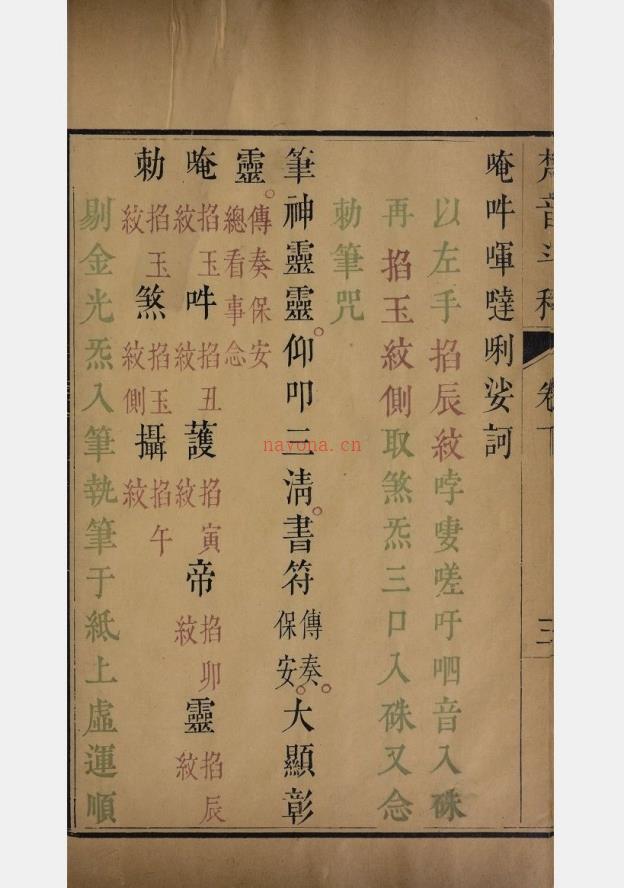 梵音斗科 卷下 三
唵吽㖶噠唎娑訶
以左手掐辰紋哱嘍嗟吁呬音入硃
再掐玉紋側取煞炁三口入硃又念
勅筆咒
筆神靈靈仰叩三清書符傳奏保安大顯彰
靈傳奏保安總看事念
唵掐玉紋吽掐丑紋護掐寅紋帝掐卯紋靈掐辰紋
勅掐玉紋煞掐玉紋側攝掐午紋
剔金光炁入筆執筆于紙上虛運順
nayona.cn